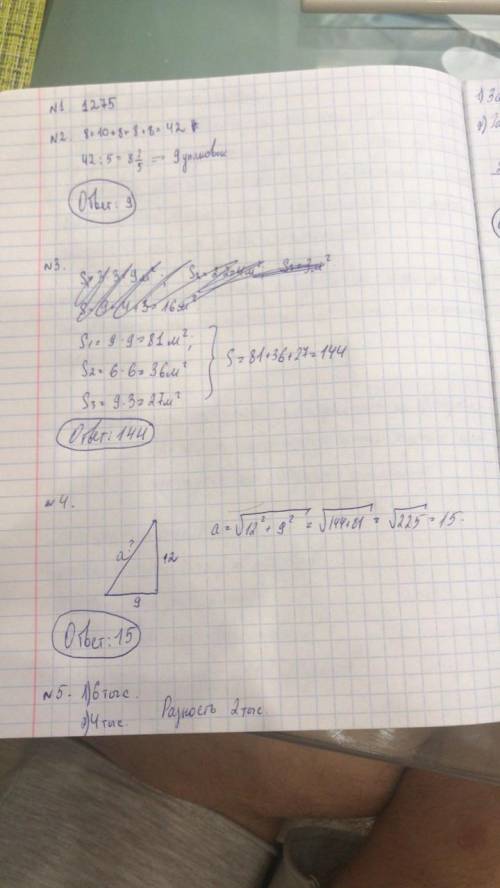 №1 1275
№2. 8+10+8+8+8=42
42:5=8 2/5 => 9 упаковок
Ответ: 9
№3.
S1=3·3=9м²;
8=9+4+3=16м²
S1=9·9=81м²,
S2=6·6=36м²
S3=9·3=27м²
S=81+36+27=144
Ответ: 144
№4.
a=√12²+9²=√144+81=√225=15.
a?
12
9
Ответ: 15
№5. 1) 6 тыс.
2) 4 тыс. Разность 2 тыс.